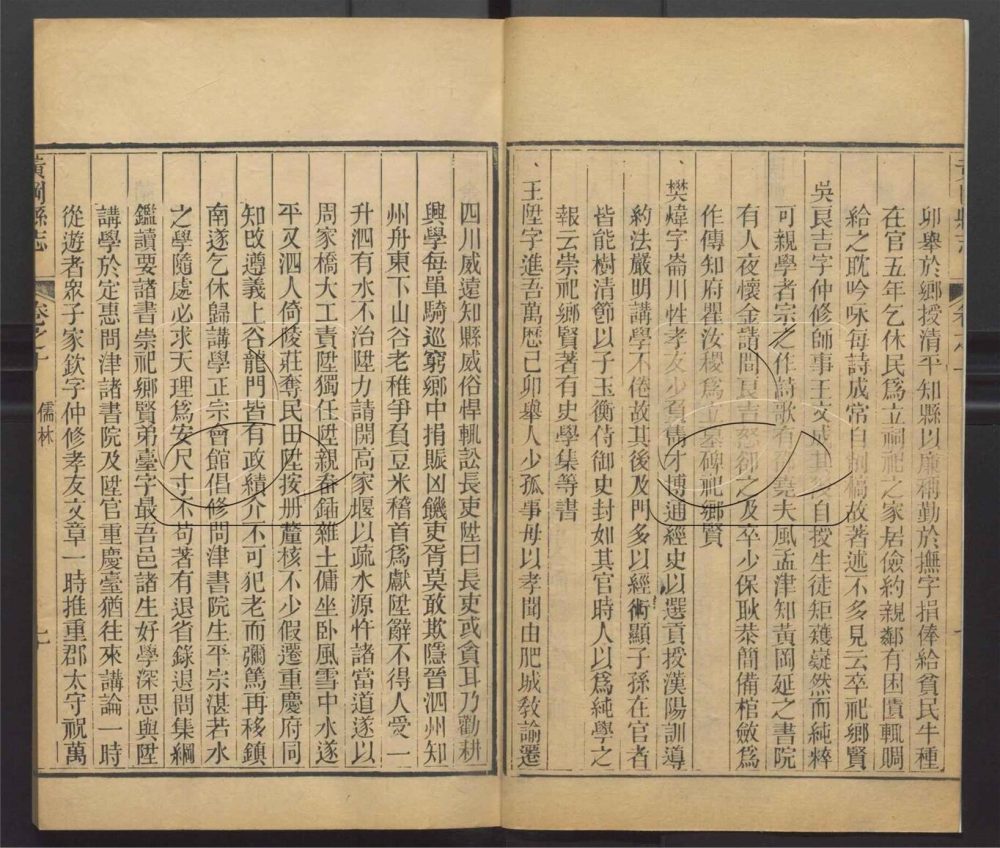 卯舉於鄉授清平知縣以廉稱勤於撫字捐俸給貧民牛種
在官五年乞休民爲立祠祀之家居儉約親鄰有困匱輒賙
給之耽吟咏每詩成常自削稿故著述不多見云卒祀鄉賢
吳良吉字仲修師事王文成其後自授生徒矩矱嶷然而純粹
可親學者宗之作詩歌有邵堯夫風孟津知黃岡延之書院
有人夜懷金請間良吉怒卻之及卒少保耿恭簡備棺斂爲
作傳知府瞿汝稷爲立墓碑祀鄉賢
樊煒字崙川性孝友少負雋才博通經史以選貢授漢陽訓導
約法嚴明講學不倦故其後及門多以經術顯子孫在官者
皆能樹清節以子玉衡侍御史封如其官時人以爲純學之
報云崇祀鄉賢著有史學集等書
王陞字進吾萬歷己卯舉人少孤事母以孝聞由肥城敎諭遷
四川威遠知縣威俗悍輒訟長吏陞曰長吏或貪耳乃勸耕
興學每單騎巡窮鄉中捐賑凶饑吏胥莫敢欺隱晉泗州知
州舟東下山谷老稚爭負豆米稽首爲獻陞辭不得人受一
升泗有水不治陞力請開高家堰以疏水源忤諸當道遂以
周家橋大工責陞獨任陞親畚鍤雜土傭坐卧風雪中水遂
平又泗人倚陵莊奪民田陞按册釐核不少假遷重慶府同
知改遵義上谷龍門皆有政績介不可犯老而彌篤再移鎮
南遂乞休歸講學正宗會館倡修問津書院生平宗湛若水
之學隨處必求天理爲安尺寸不苟著有退省錄退問集綱
鑑讀要諸書崇祀鄉賢弟臺字最吾邑諸生好學深思與陞
講學於定惠問津諸書院及陞官重慶臺猶往來講論一時
從遊者衆子家欽字仲修孝友文章一時推重郡太守祝萬
黃岡縣志
卷之十
儒林